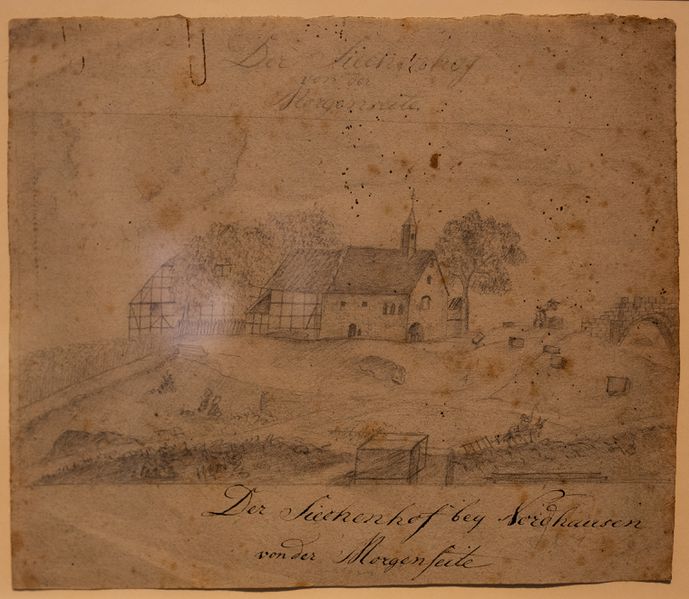 Der Siechenhof
von der
Morgenseite.
Der Siechenhof bey Nordhausen
von der Morgenseite